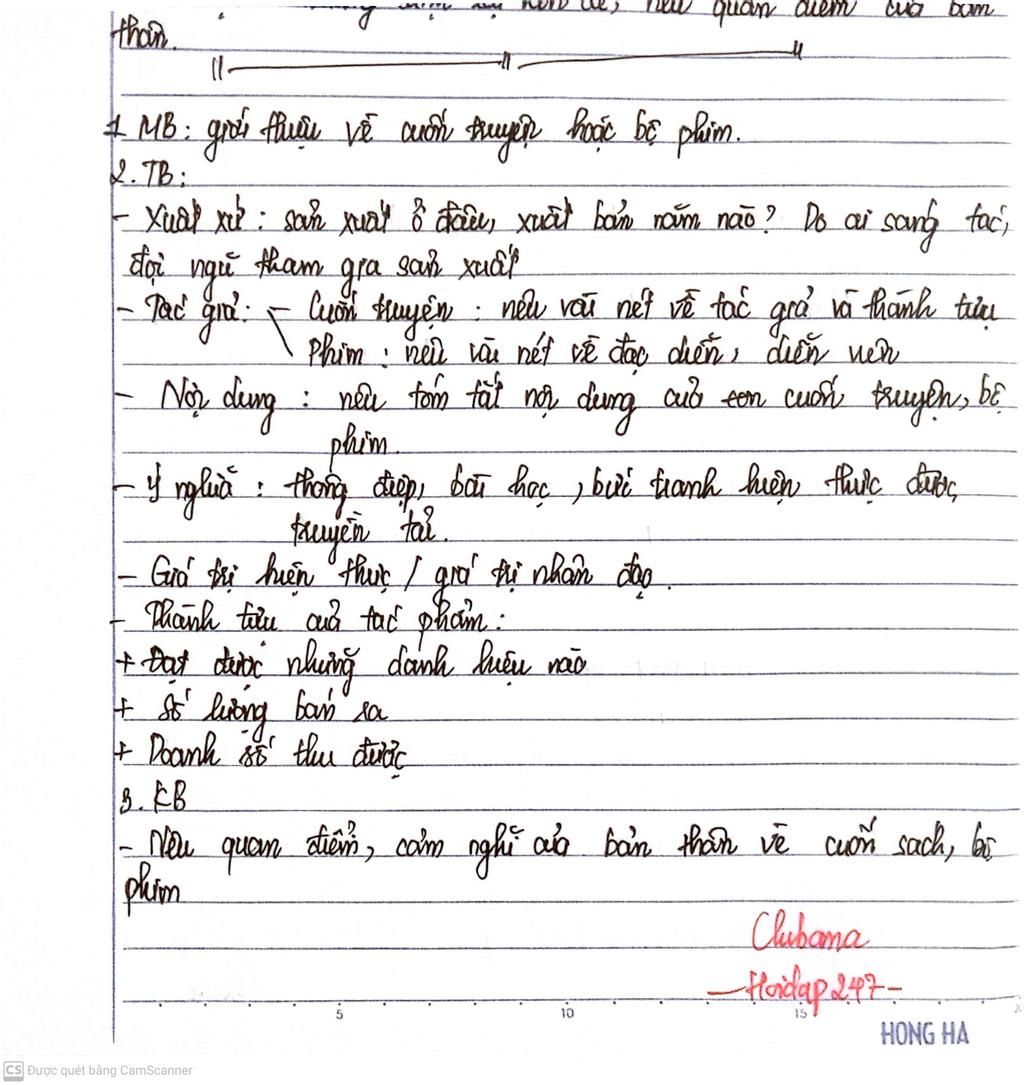 quan điểm của bản
thân.
1. MB: giới thiệu về cuốn truyện hoặc bộ phim.
2. TB:
- Xuất xứ: sản xuất ở đâu, xuất bản năm nào? Do ai sang tác,
đội ngũ tham gia sản xuất
- Tác giả: - Cuốn truyện: nêu vài nét về tác giả và thành tựu
Phim: nêu vài nét về đạo diễn, diễn viên
- Nội dung: nêu tóm tắt nội dung của con cuốn truyện, bộ
phim.
- Ý nghĩa: thông điệp, bài học, bức tranh hiện thực được
truyền tải.
- Giá trị hiện thực / giá trị nhân đạo.
- Thành tựu của tác phẩm:
+ Đạt được những danh hiệu nào
+ Số lượng bán ra
+ Doanh số thu được
3. KB
- Nêu quan điểm, cảm nghĩ của bản thân về cuốn sách, bộ
phim
Clubama
-Hoidap247-
5 10 15
HONG HA
CS Được quét bằng CamScanner